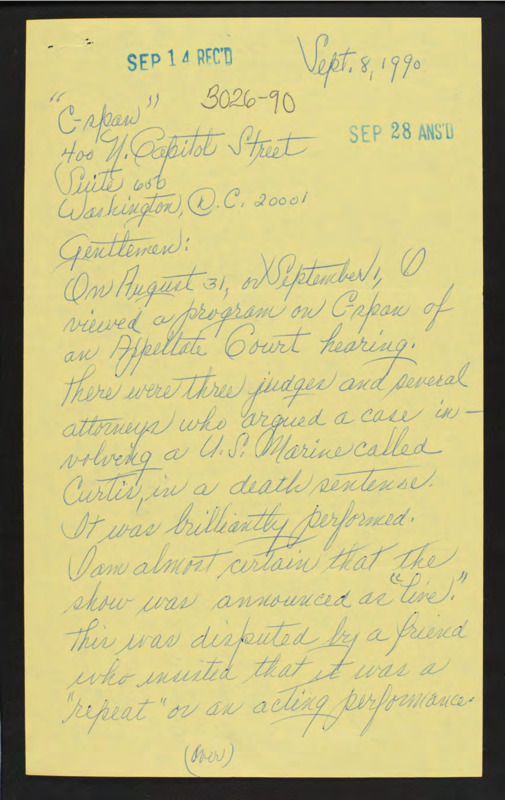 SEP 14 REC'D
Sept. 8, 1990
3026-90
"C-span"
SEP 28 ANS'D
400 N. Capitol Street
Suite 650
Washington, D.C. 20001
Gentlemen:
On August 31, or September 1, I
viewed a program on C-span of
an Appellate Court hearing.
There were three judges and several
attorneys who argued a case in-
volving a U.S. Marine called
Curtis, in a death sentense.
It was brilliantly performed.
I am almost certain that the
show was announced as "live."
This was disputed by a friend
who insisted that it was a
"repeat" or an acting performance.
(over)